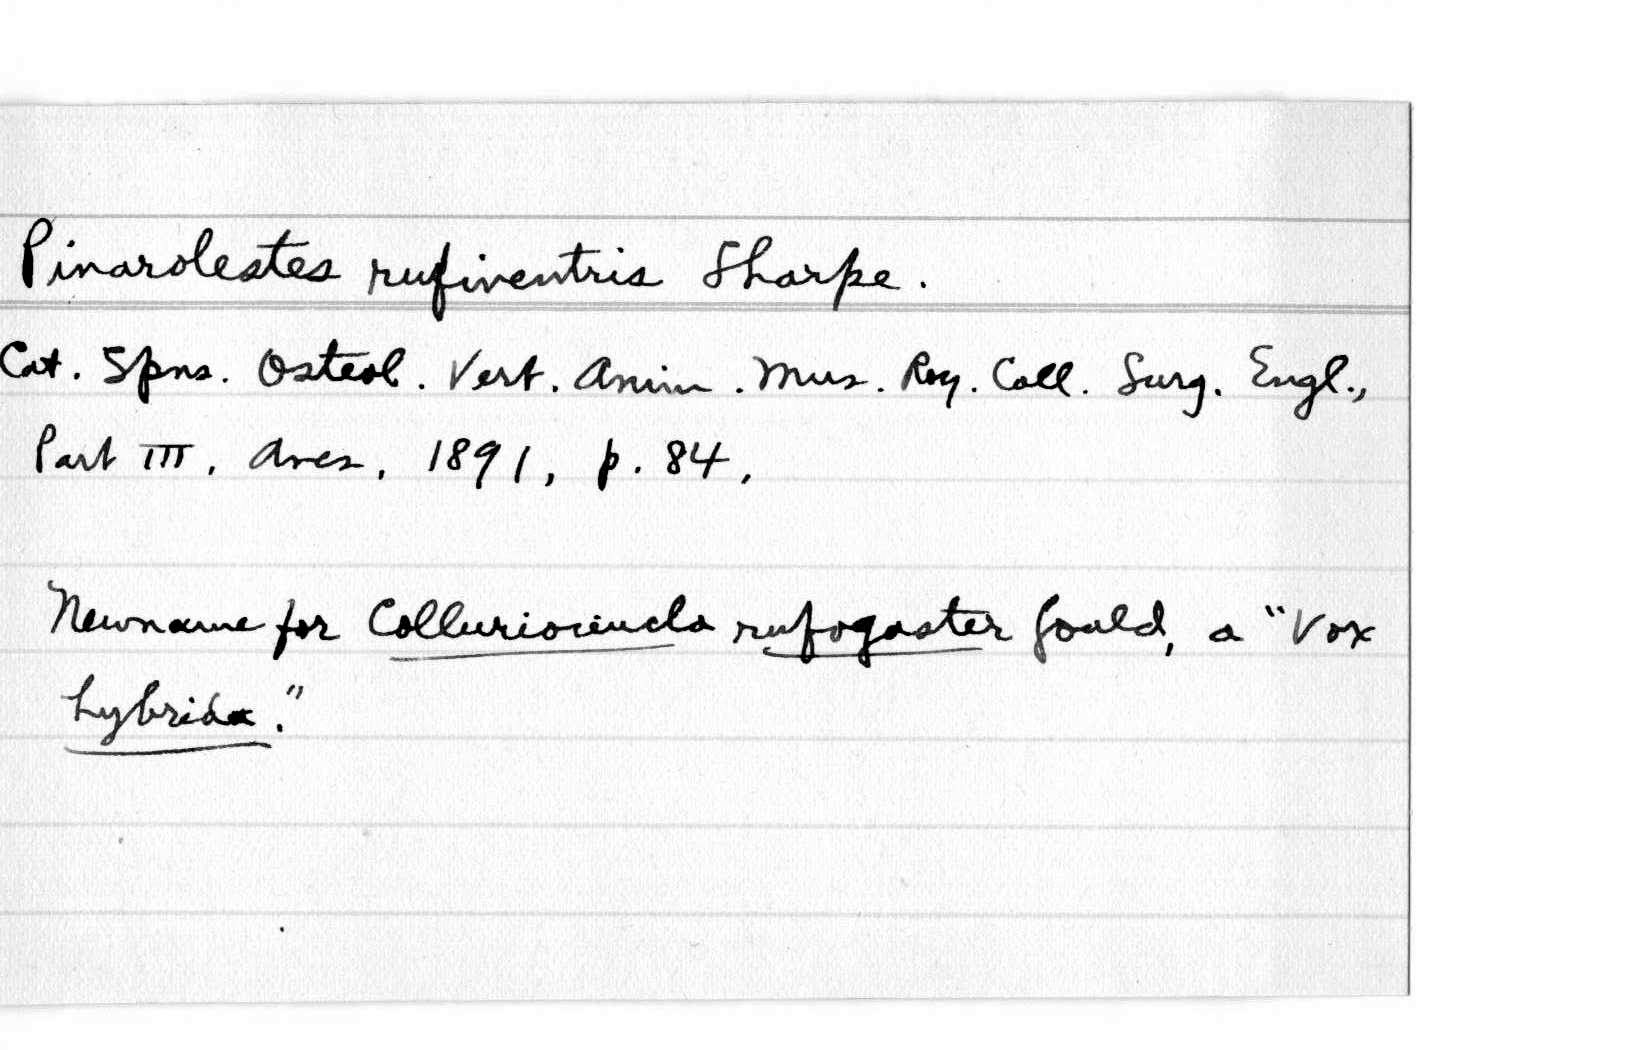 Pinarolestes rufiventris Sharpe.
Cat. Spns. Osteol. Vert. Anim. Mus. Roy. Coll. Surg. Engl.,
Part III, Aves, 1891, p. 84,
New name for Colluriocincla rufogaster Gould, a "Vox
hybrida."